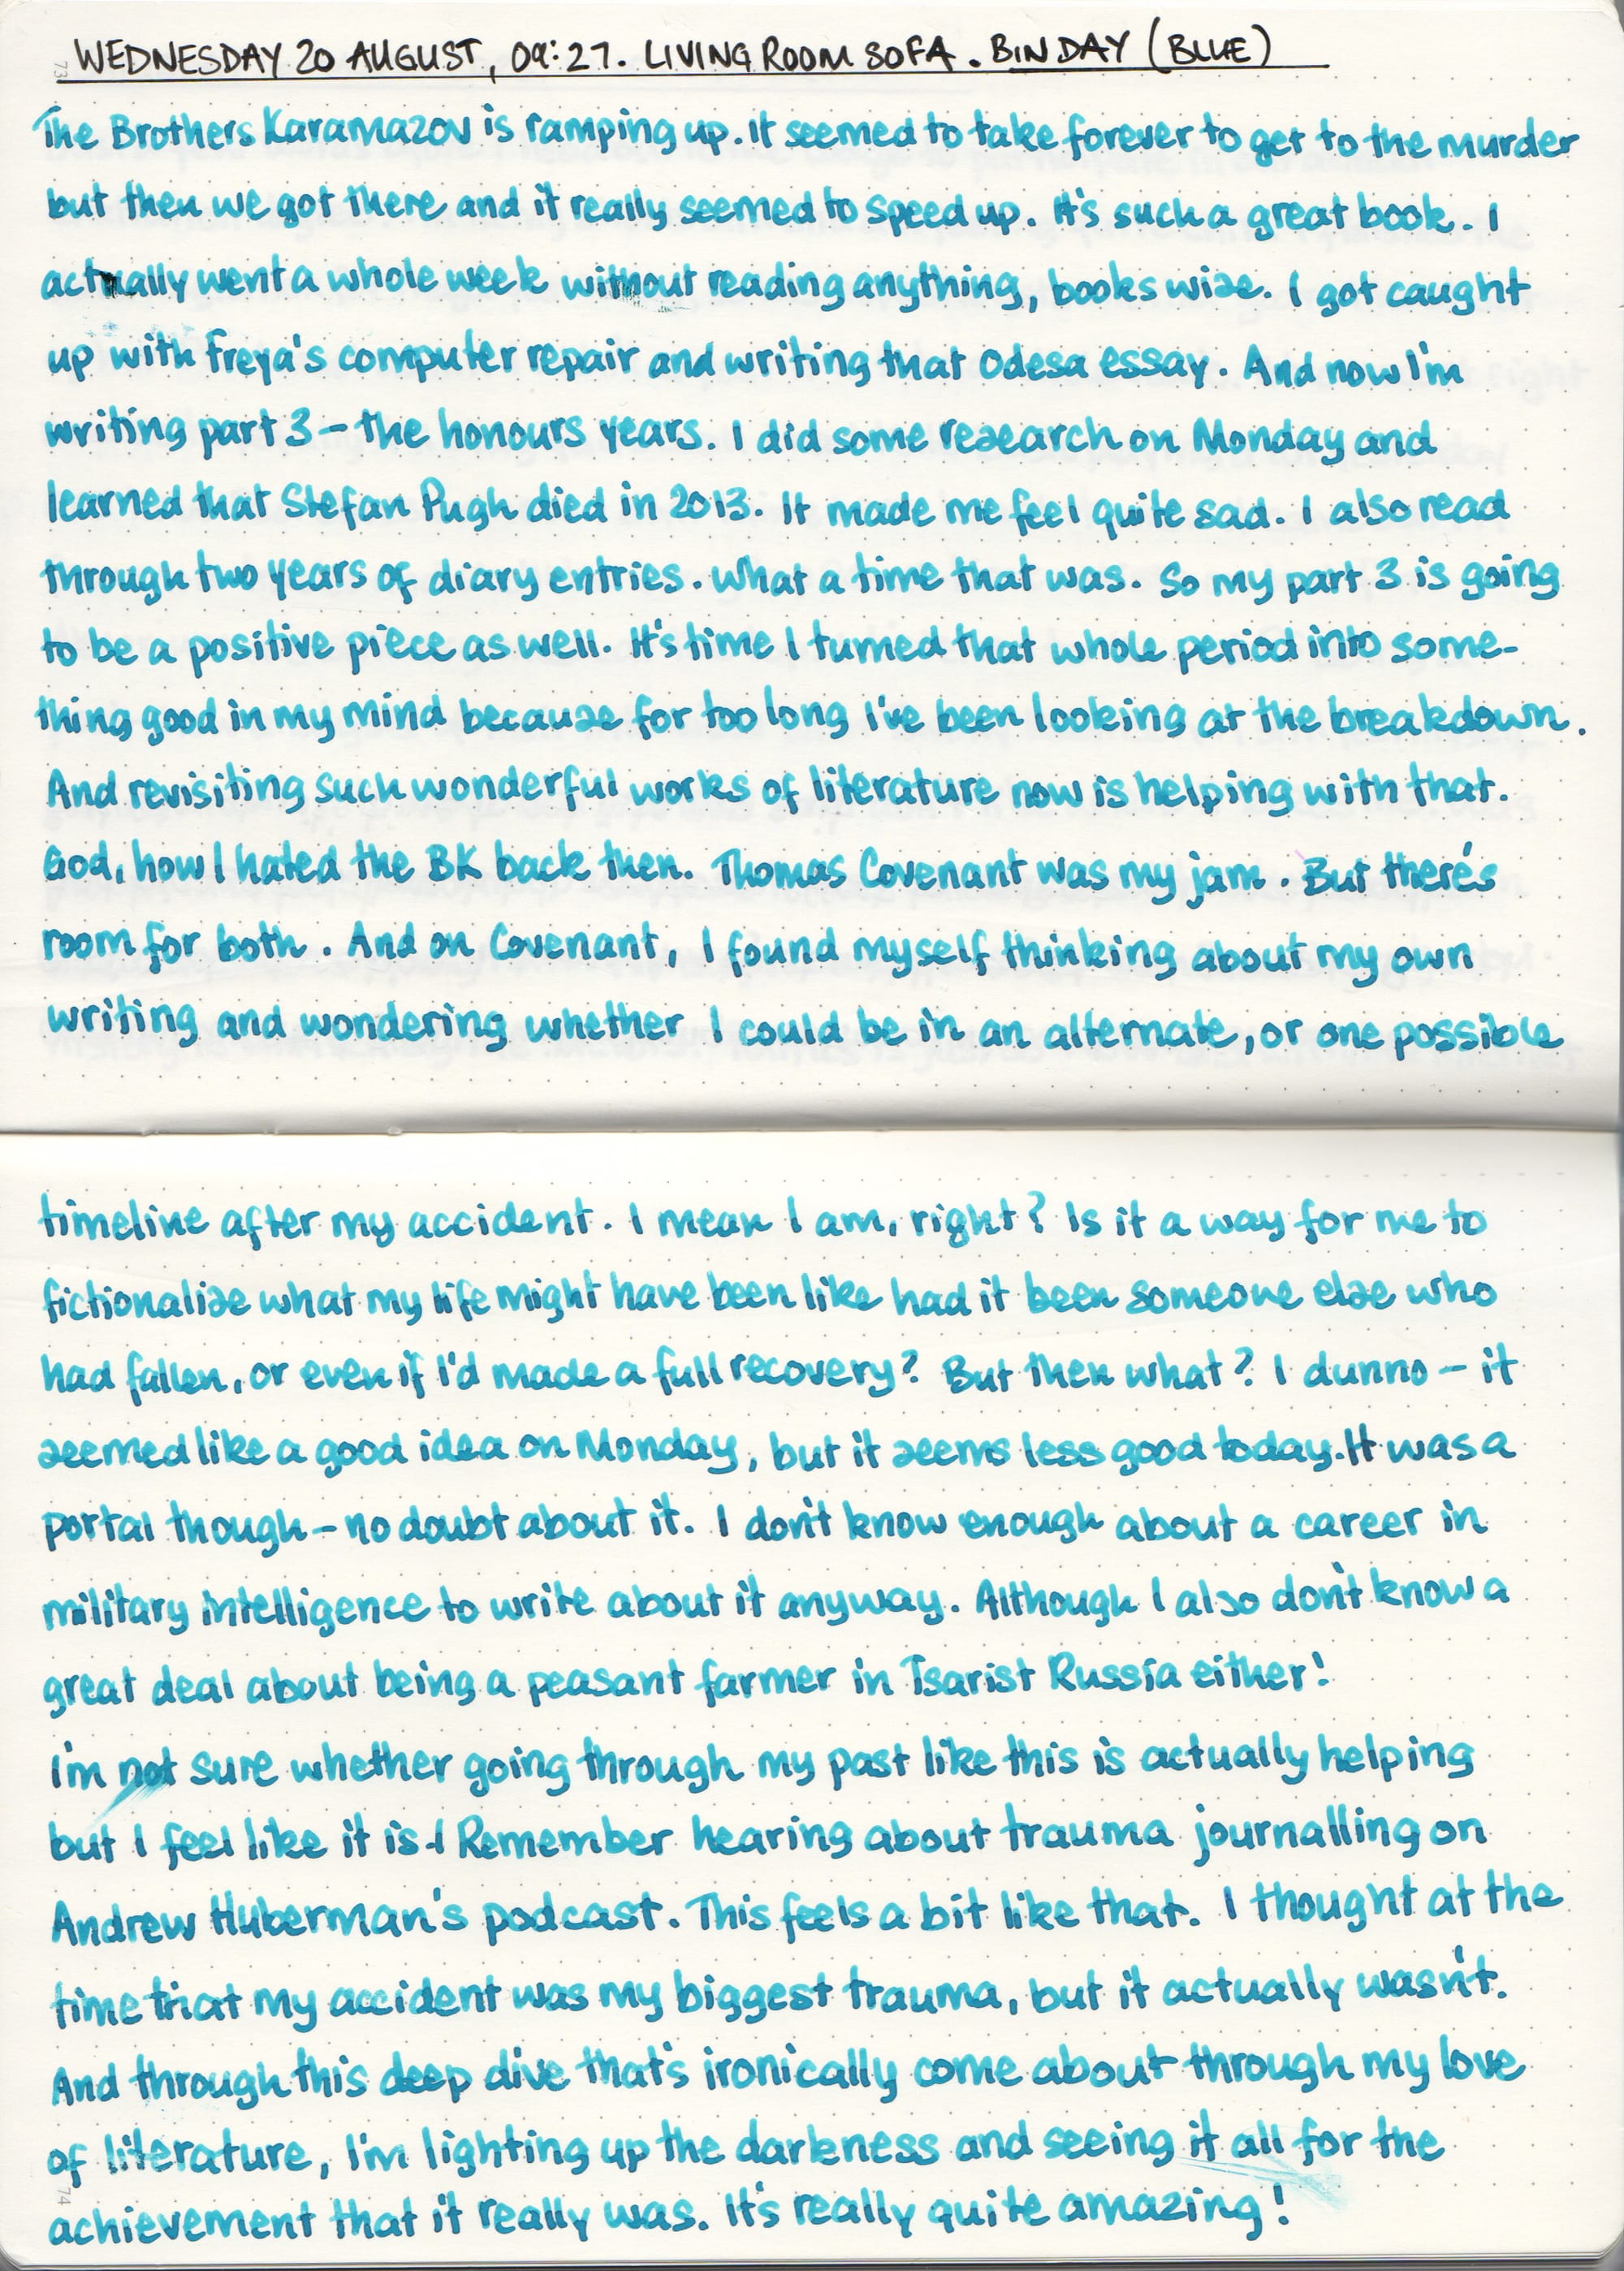 WEDNESDAY 20 AUGUST, 09:27. LIVING ROOM SOFA. BIN DAY (BLUE)
73
The Brothers Karamazov is ramping up. It seemed to take forever to get to the murder
but then we got there and it really seemed to speed up. It's such a great book. I
actually went a whole week without reading anything, books wise. I got caught
up with Freya's computer repair and writing that Odesa essay. And now I'm
writing part 3 – the honours years. I did some research on Monday and
learned that Stefan Pugh died in 2013. It made me feel quite sad. I also read
through two years of diary entries. What a time that was. So my part 3 is going
to be a positive piece as well. It's time I turned that whole period into some-
thing good in my mind because for too long I've been looking at the breakdown.
And revisiting such wonderful works of literature now is helping with that.
God, how I hated the BK back then. Thomas Covenant was my jam. But there's
room for both. And on Covenant, I found myself thinking about my own
writing and wondering whether I could be in an alternate, or one possible
timeline after my accident. I mean I am, right? Is it a way for me to
fictionalise what my life might have been like had it been someone else who
had fallen, or even if I'd made a full recovery? But then what? I dunno – it
seemed like a good idea on Monday, but it seems less good today. It was a
portal though – no doubt about it. I don't know enough about a career in
military intelligence to write about it anyway. Although I also don't know a
great deal about being a peasant farmer in Tsarist Russia either!
I'm not sure whether going through my past like this is actually helping
but I feel like it is. I Remember hearing about trauma journalling on
Andrew Huberman's podcast. This feels a bit like that. I thought at the
time that my accident was my biggest trauma, but it actually wasn't.
And through this deep dive that's ironically come about through my love
of literature, I'm lighting up the darkness and seeing it all for the
achievement that it really was. It's really quite amazing!
74